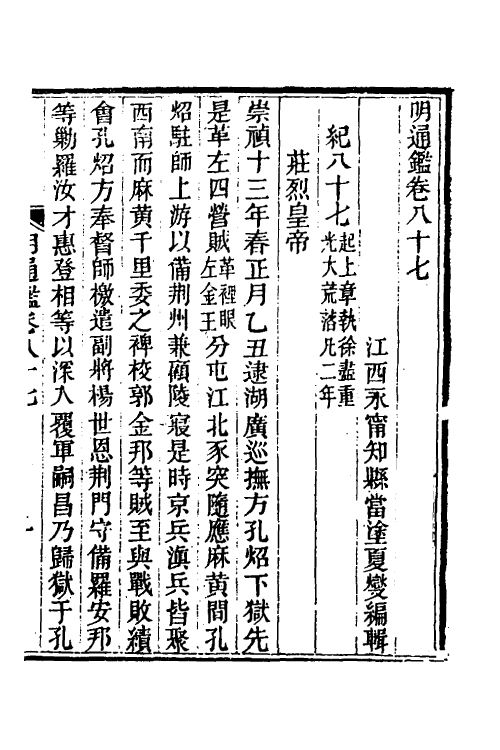 明通鑑卷八十七
江西永甯知縣當塗夏燮編輯
紀八十七起上章執徐盡重光大荒落凡二年
莊烈皇帝
崇禎十三年春正月乙丑逮湖廣巡撫方孔炤下獄先
是革左四營賊革裡眼左金王分屯江北豕突隨應麻黃間孔
炤駐師上游以備荆州兼顧陵寢是時京兵滇兵皆聚
西南而麻黃千里委之裨校郭金邦等賊至與戰敗績
會孔炤方奉督師檄遣副將楊世恩荆門守備羅安邦
等勦羅汝才惠登相等以深入覆軍嗣昌乃歸獄于孔
明通鑑卷八十七